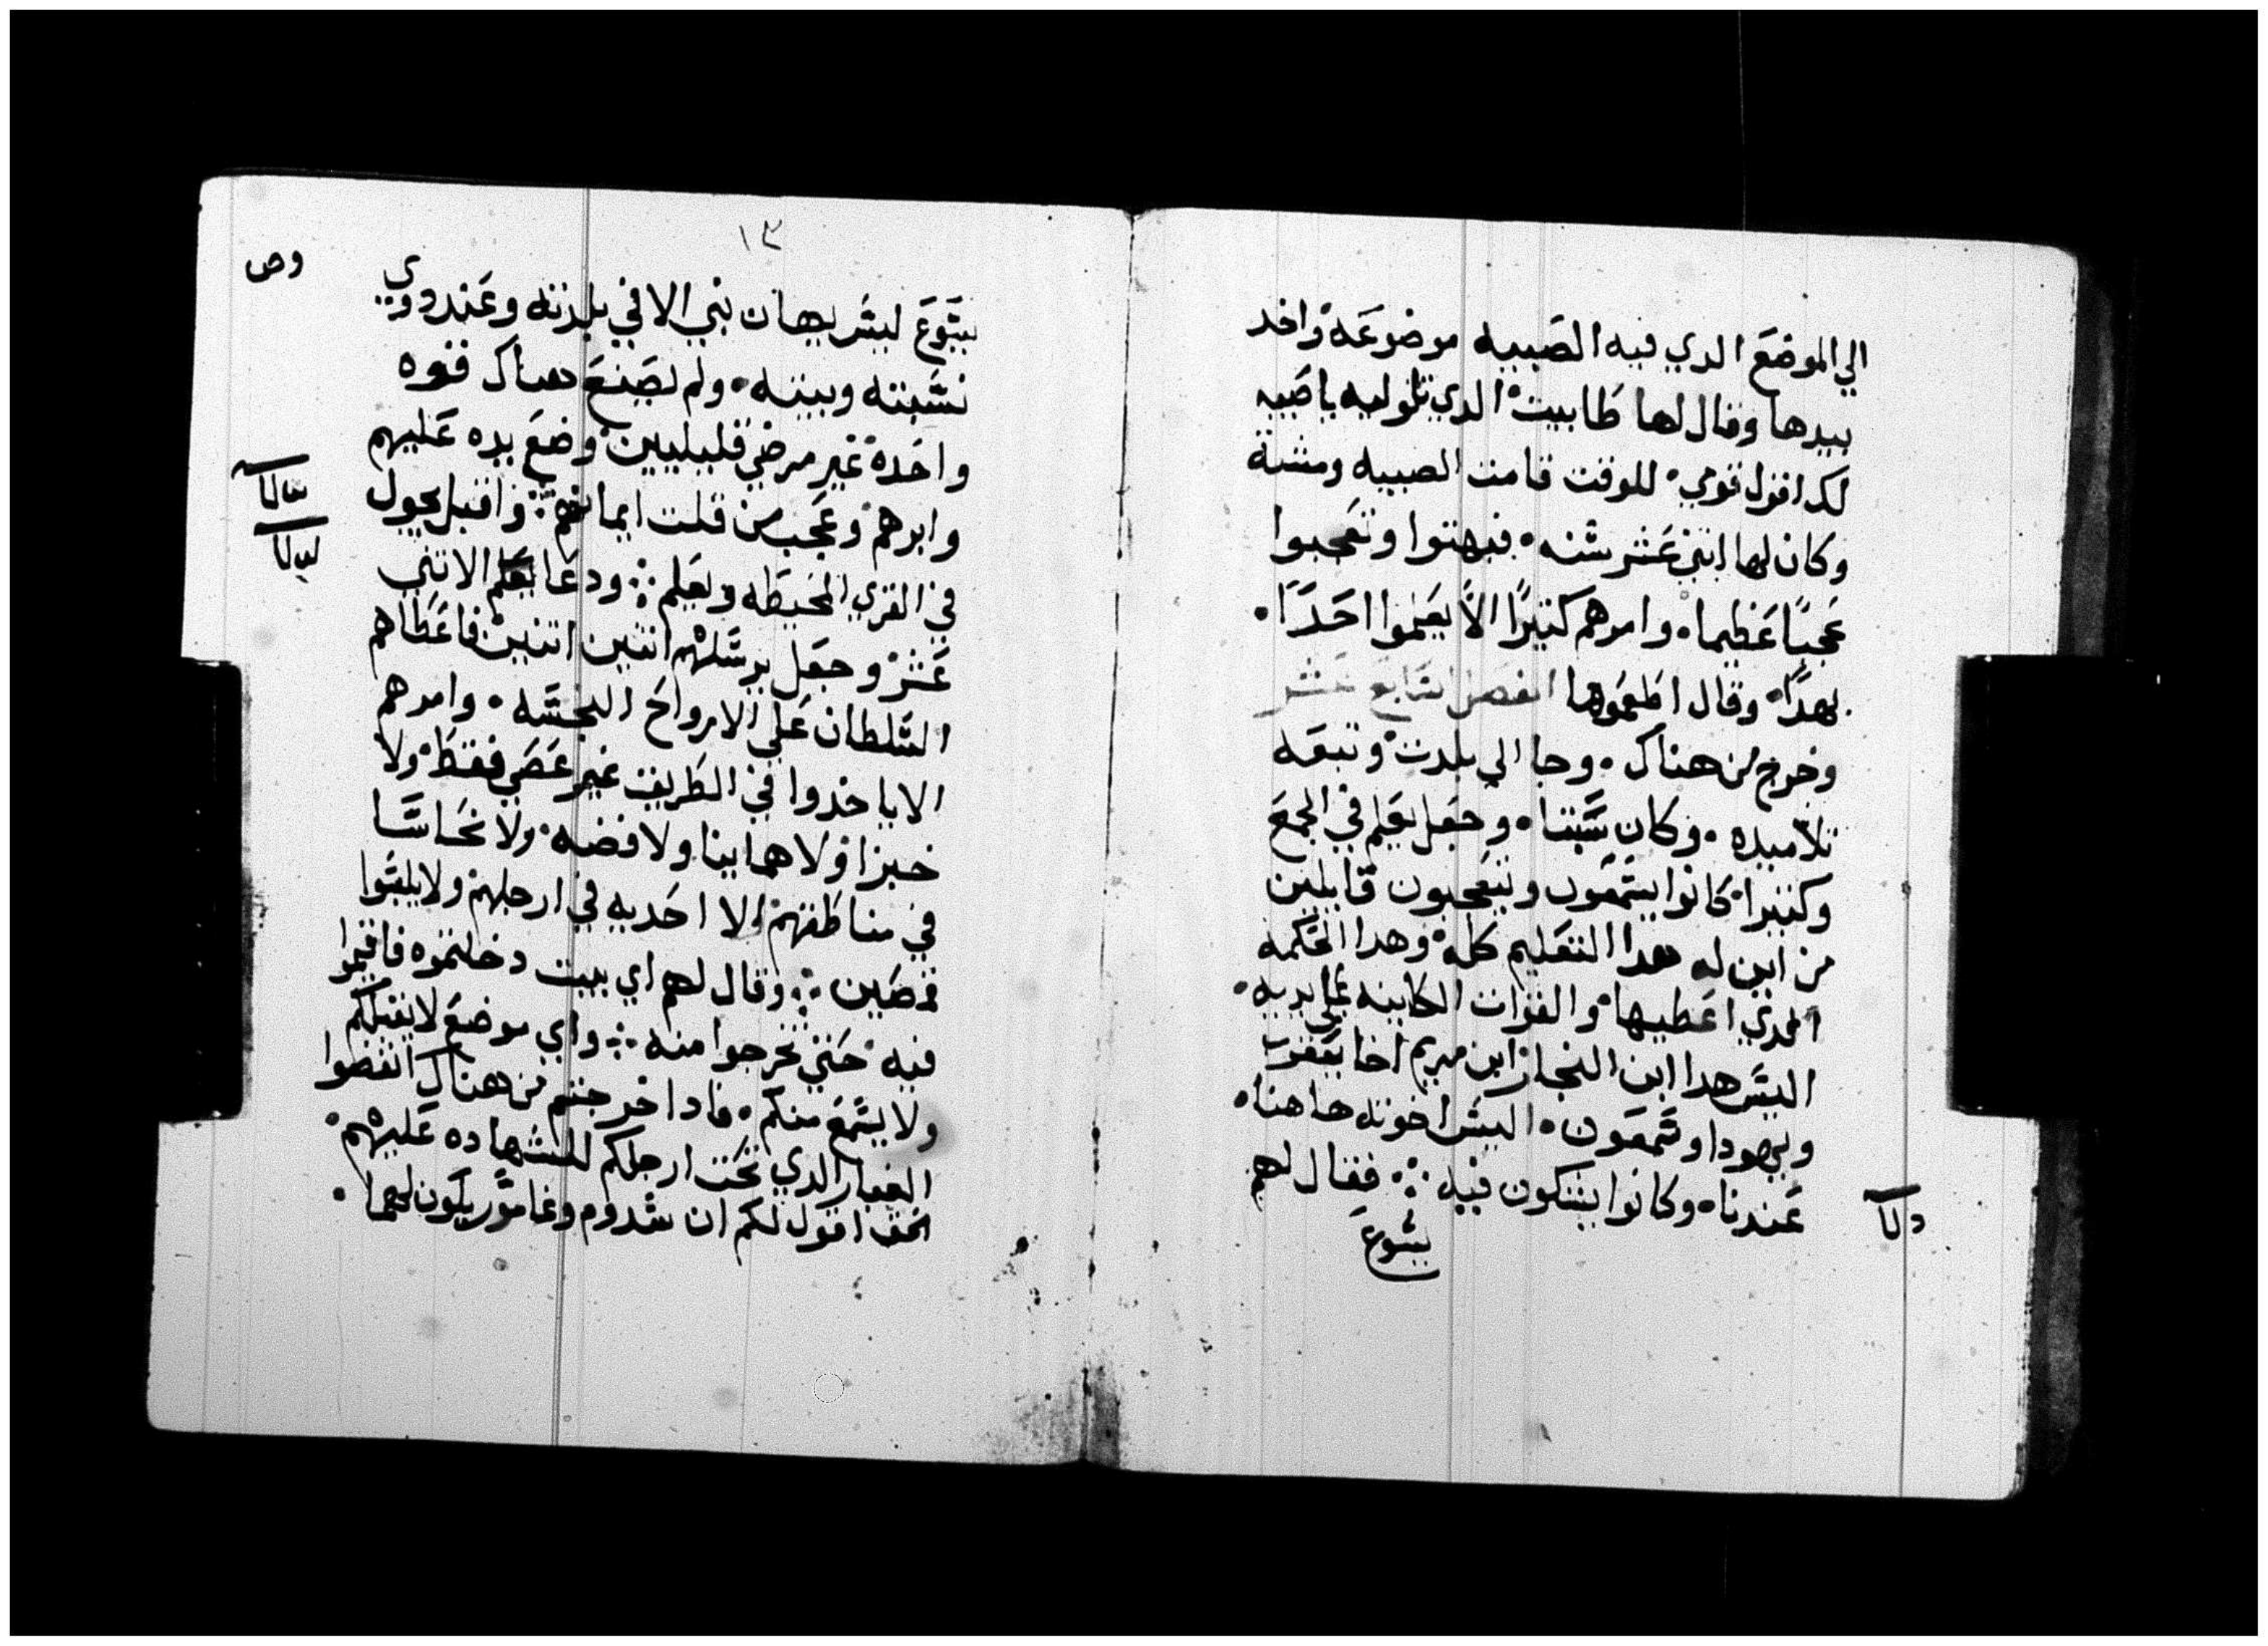 الي الموضع الدي فيه الصبيه موضوعه واخد
بيدها وقال لها طابيت الدي تاوليه ياصبيه
لك اقول قومي للوقت قامت الصبيه ومشت
وكان لها اتني عشر سنه فبهتوا وتعجبوا
عجبًا عظيما وامرهم كتيرًا الا يعلموا احدًا
بهدا وقال اطعموها الفصل السابع عشر
وخرج من هناك وجا الي بلدت وتبعه
تلاميده وكان سبتا وجعل يعلم في المجمع
وكتيرا كانوا يسمعون ويتعجبون قايلين
من اين له هدا التعليم كله وهدا الحكمه
الدي اعطيها والقوات الكاينه علي يديه
اليس هدا ابن النجار ابن مريم اخا يعقوب
ويهودا وسمعون اليس اخوته هاهنا
عندنا وكانوا يشكون فيه فقال لهم
يسوع
دلا
١٣
وص
يسوع ليس يهان نبي الا في بلدته وعند دوي
نسبته وبيته ولم يصنع هناك قوه
واحده غير مرضي قليليين وضع يده عليهم
وابرهم وعجب من قلت ايمانهم واقبل يجول
في القري المحيطه ويعلم ودعا الاتني
عشر وجعل يرسلهم اتنين اتنين فاعطاهم
السلطان علي الارواح النجسه وامرهم
الا ياخدوا في الطريق غير عصي فقط ولا
خبزا ولا هماينا ولا فضه ولا نحاسا
في مناطقهم الا احديه في ارجلهم ولا يلبسوا
قمصين وقال لهم اي بيت دخلتموه فاقيموا
فيه حتي تخرجوا منه واي موضع لا يقبلكم
ولا يسمع منكم فادا خرجتم من هناك انفضوا
الغبار الدي تحت ارجلكم للشهاده عليهم
الحق اقول لكم ان سدوم وغامور يكون لهما